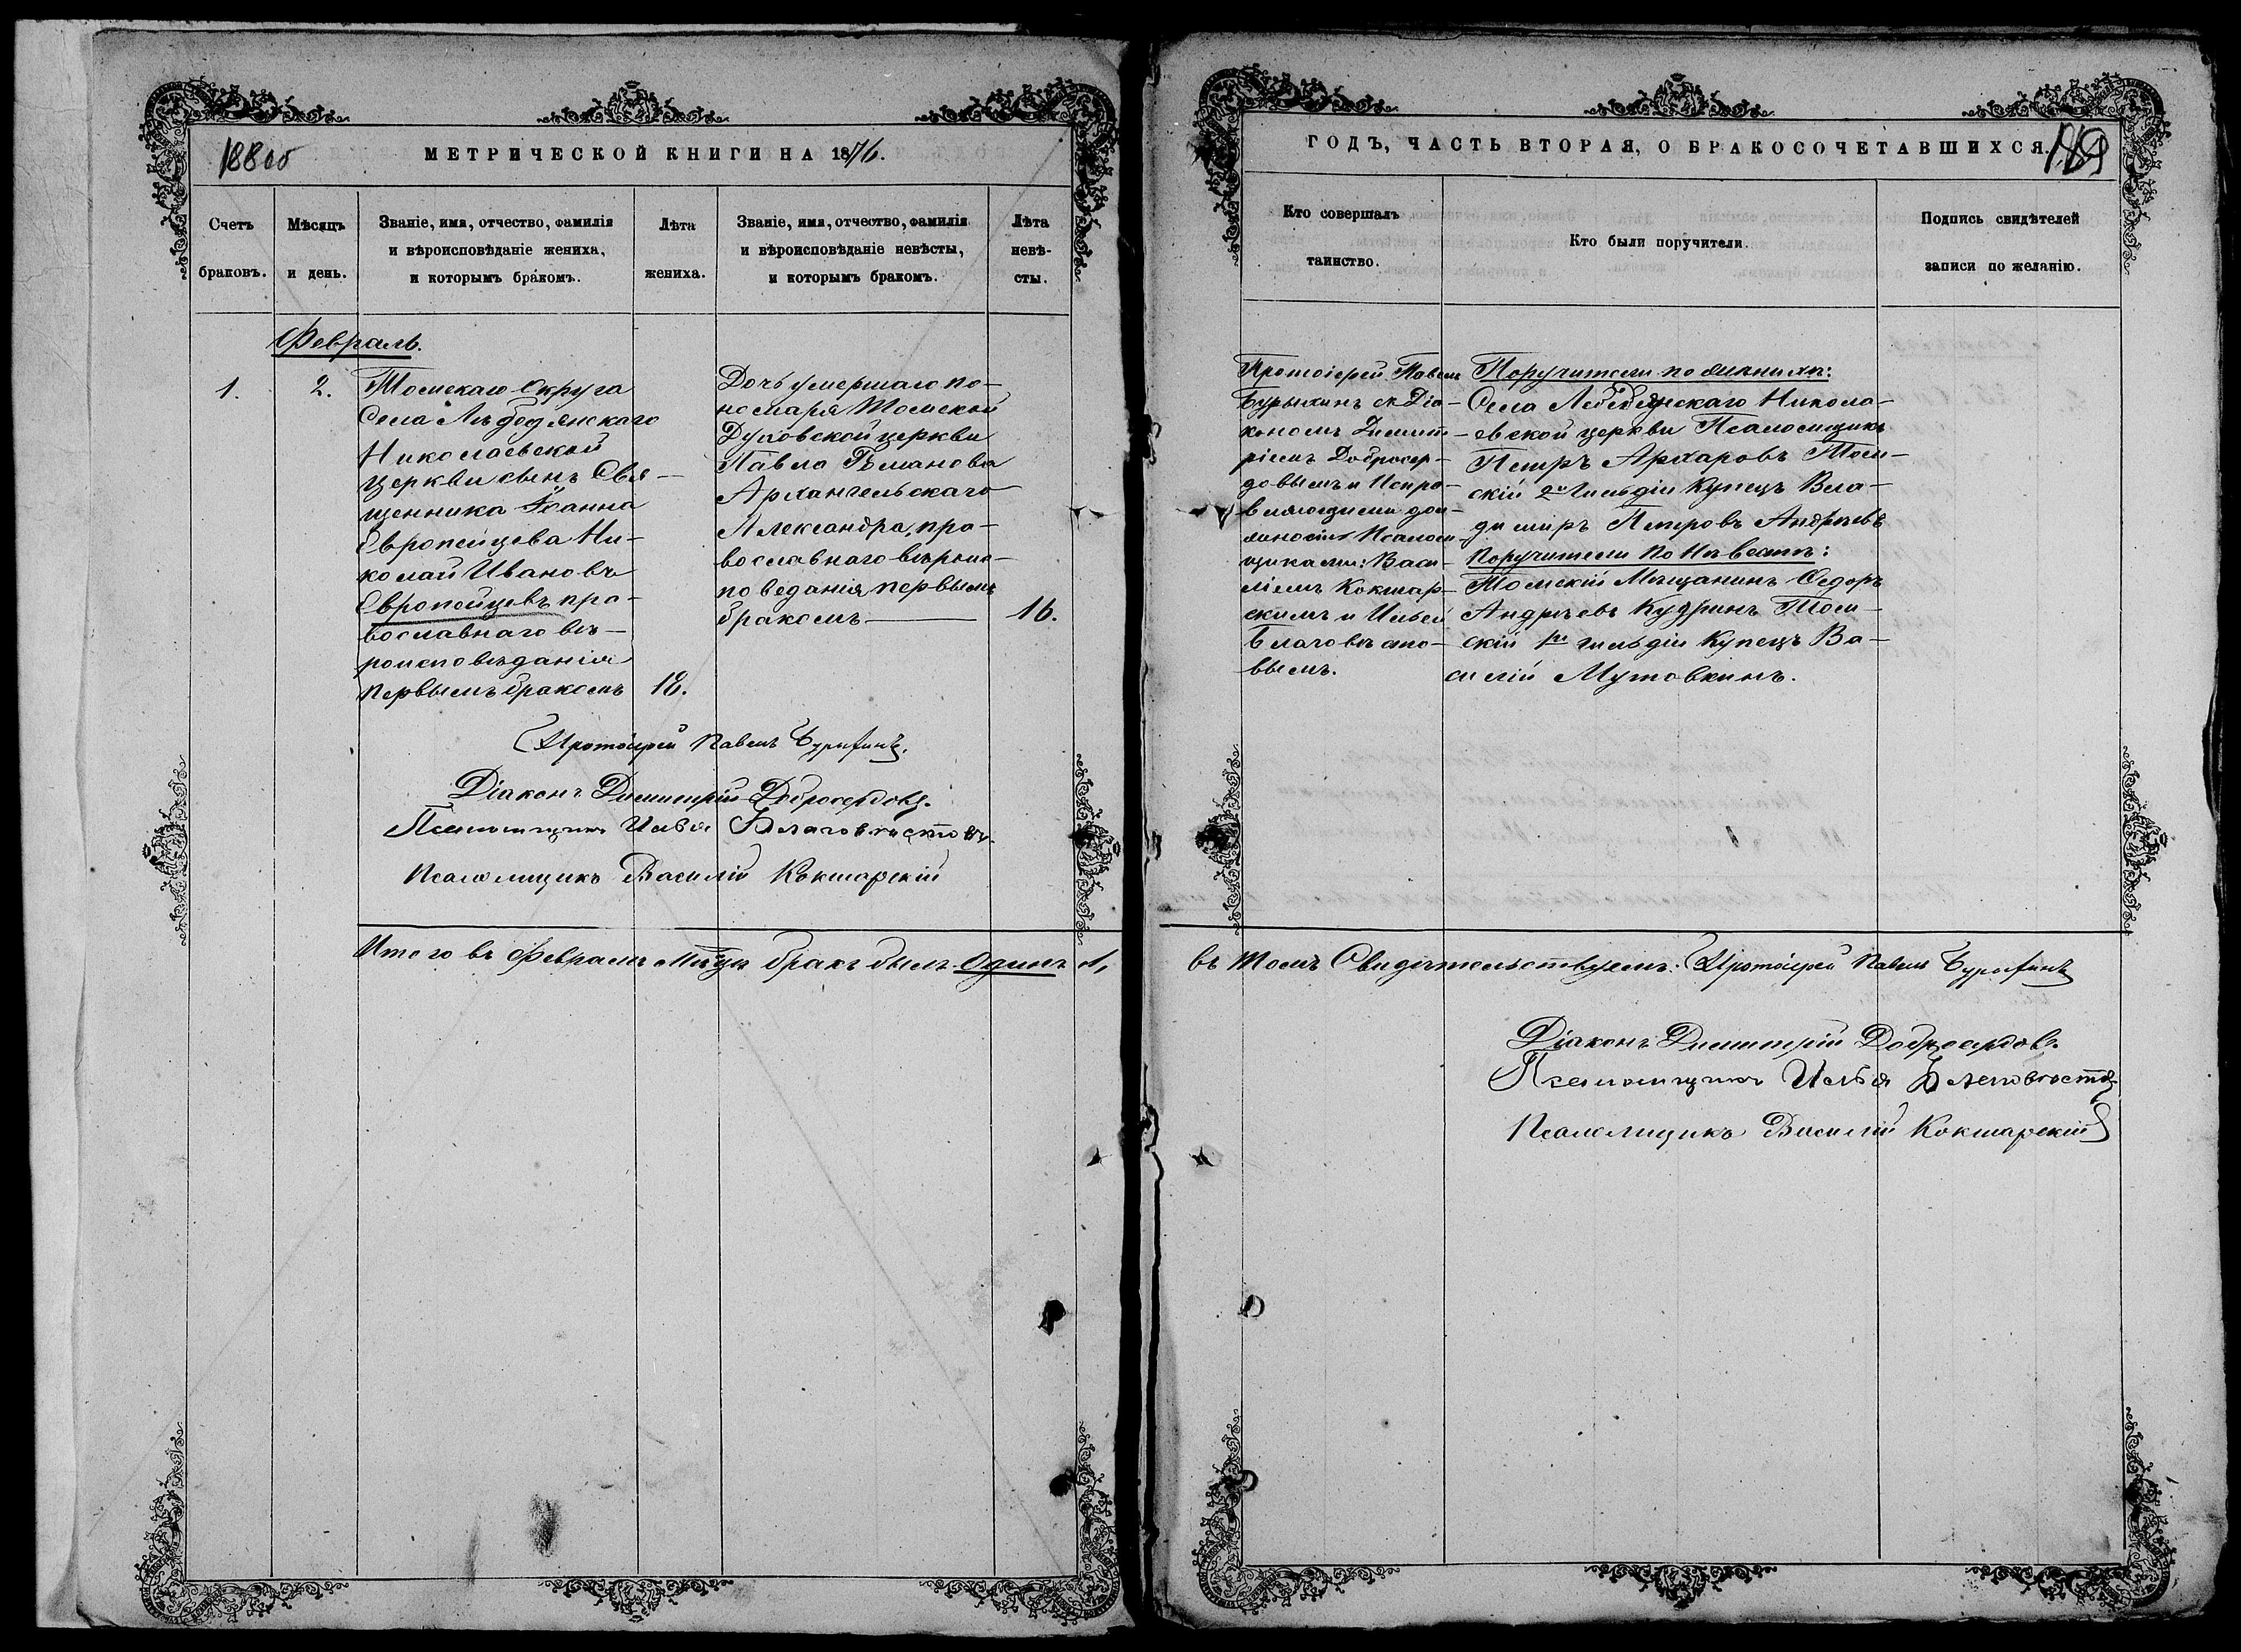 188 об
МЕТРИЧЕСКОЙ КНИГИ НА 1876.
Счетъ браковъ.
Мѣсяцъ и день.
Званіе, имя, отчество, фамилія
и вѣроисповѣданіе жениха,
и которымъ бракомъ.
Лѣта жениха.
Званіе, имя, отчество, фамилія
и вѣроисповѣданіе невѣсты,
и которымъ бракомъ.
Лѣта
невѣ-
сты.
Февраль.
1.
2.
Томскаго Округа
Села Лѣбедянскаго
Николаевской
церкви сынъ Свя-
щенника Іоанна
Европейцева Ни-
колай Ивановъ
Европейцевъ пра-
вославнаго вѣ-
роисповѣданія
первымъ бракомъ
18.
Дочь умершаго по-
номаря Томской
Духовской церкви
Павла
Архангельскаго
Александра, пра-
вославнаго вѣроис-
поведанія первымъ
бракомъ
16.
Протоіерей Павелъ
Діаконъ Димитрій Добросердовъ.
Псаломщикъ Илья Благовѣстовъ.
Псаломщикъ Василій Кокшарскій
Итого въ Февралѣ Мѣцѣ бракъ былъ Одинъ 1,
ГОДЪ, ЧАСТЬ ВТОРАЯ, О БРАКОСОЧЕТАВШИХСЯ.
189
Кто совершалъ
таинство.
Кто были поручители.
Подпись свидѣтелей
записи по желанію.
Протоіерей Павелъ
съ Діа-
кономъ Димит-
ріемъ Добросер-
довымъ и Испра-
вляющими дол-
жность Псалом-
щиками: Васи-
ліемъ Кокшар-
скимъ и Ильей
Благовѣсто-
вымъ.
Поручители по женихѣ:
Села Лебедянскаго Никола-
евской церкви Псаломщикъ
Петръ Архаровъ Том-
скій 2й Гильдіи Купецъ Вла-
димиръ Петровъ Андреевъ
Поручители по Невѣстѣ:
Томскій Мѣщанинъ Ѳедоръ
Андреевъ Кудринъ Том-
скій 1й гильдіи Купецъ Ва-
силій Мутовкинъ.
въ Томъ Свидѣтельствуемъ: Протоіерей Павелъ
Діаконъ Димитрій Добросердовъ
Псаломщикъ Илья Благовѣстовъ
Псаломщикъ Василій Кокшарскій